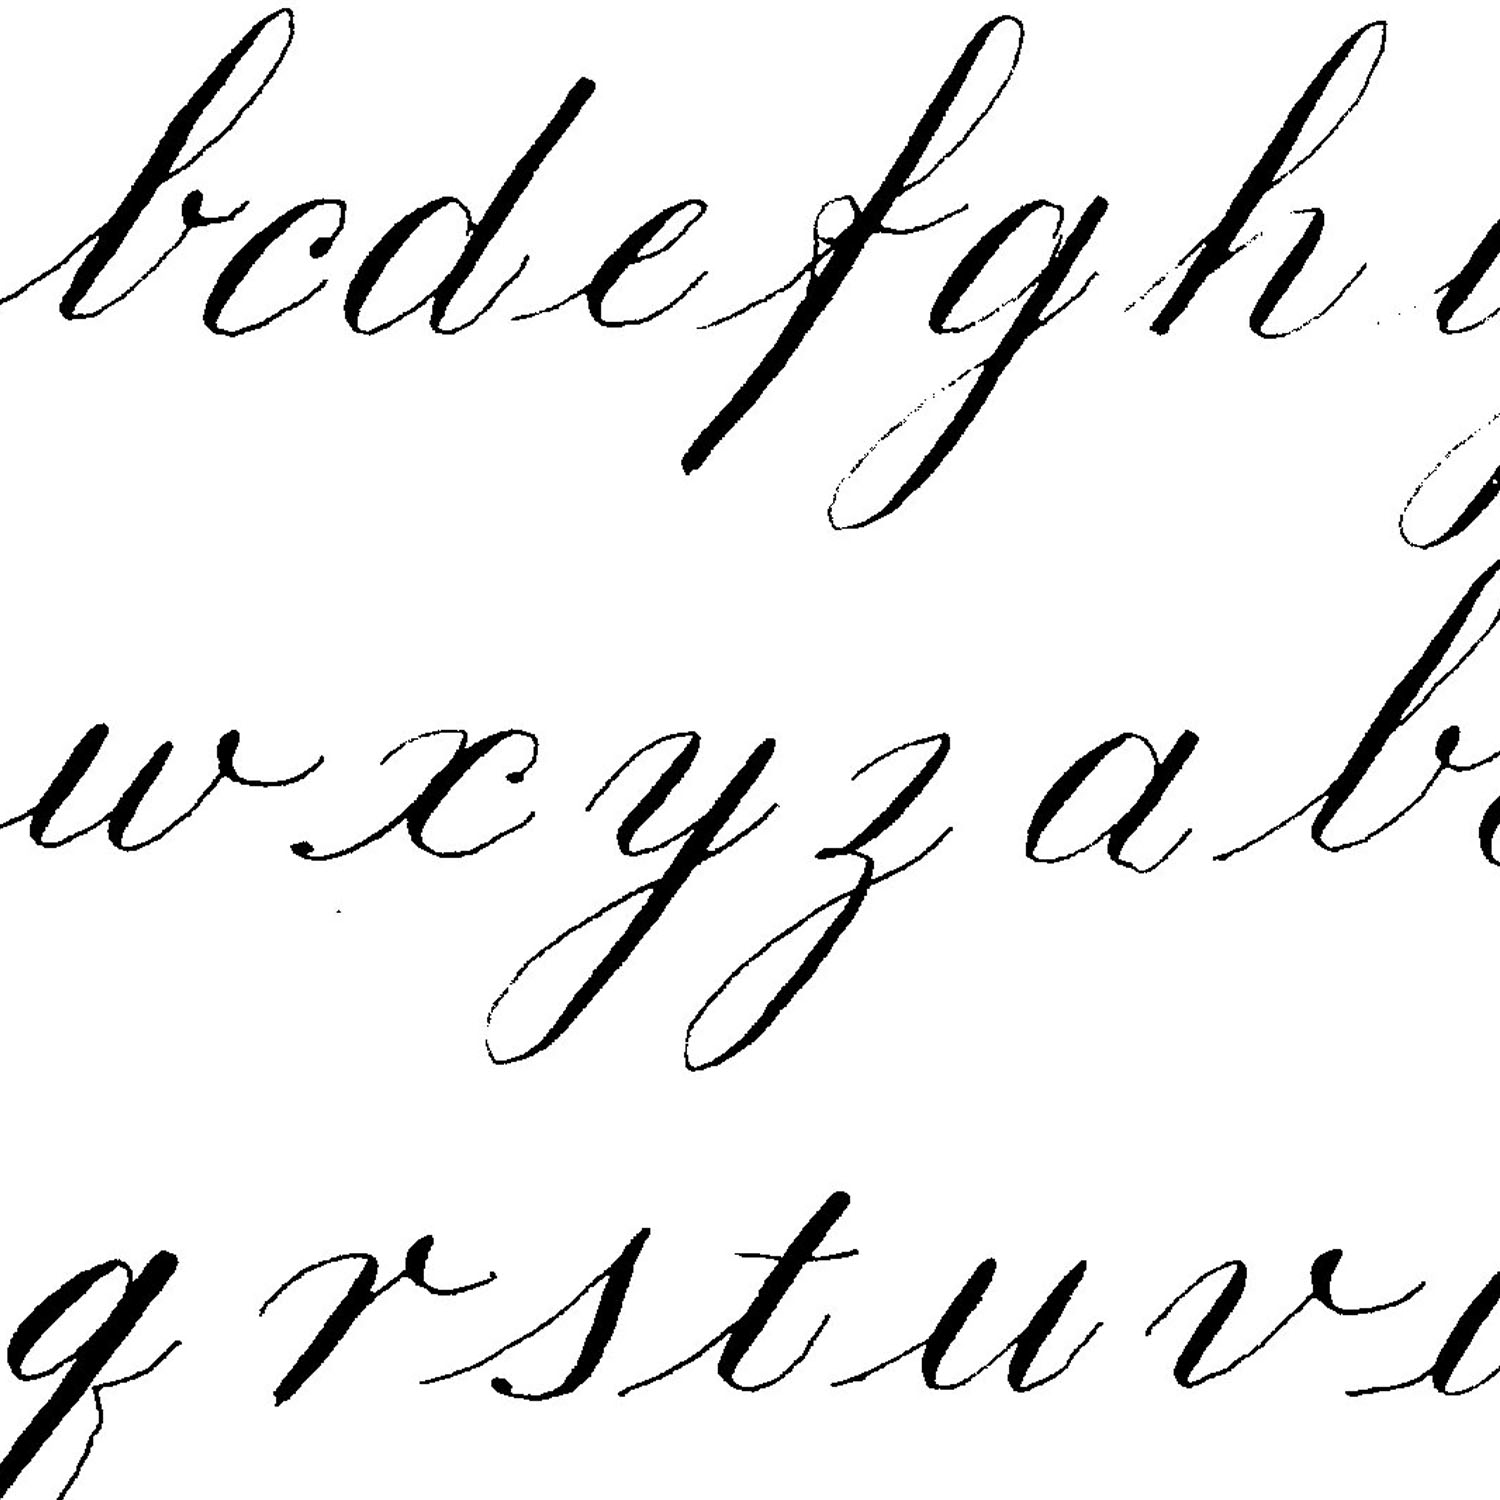 b c d e f g h
w x y z a b
q r s t u v